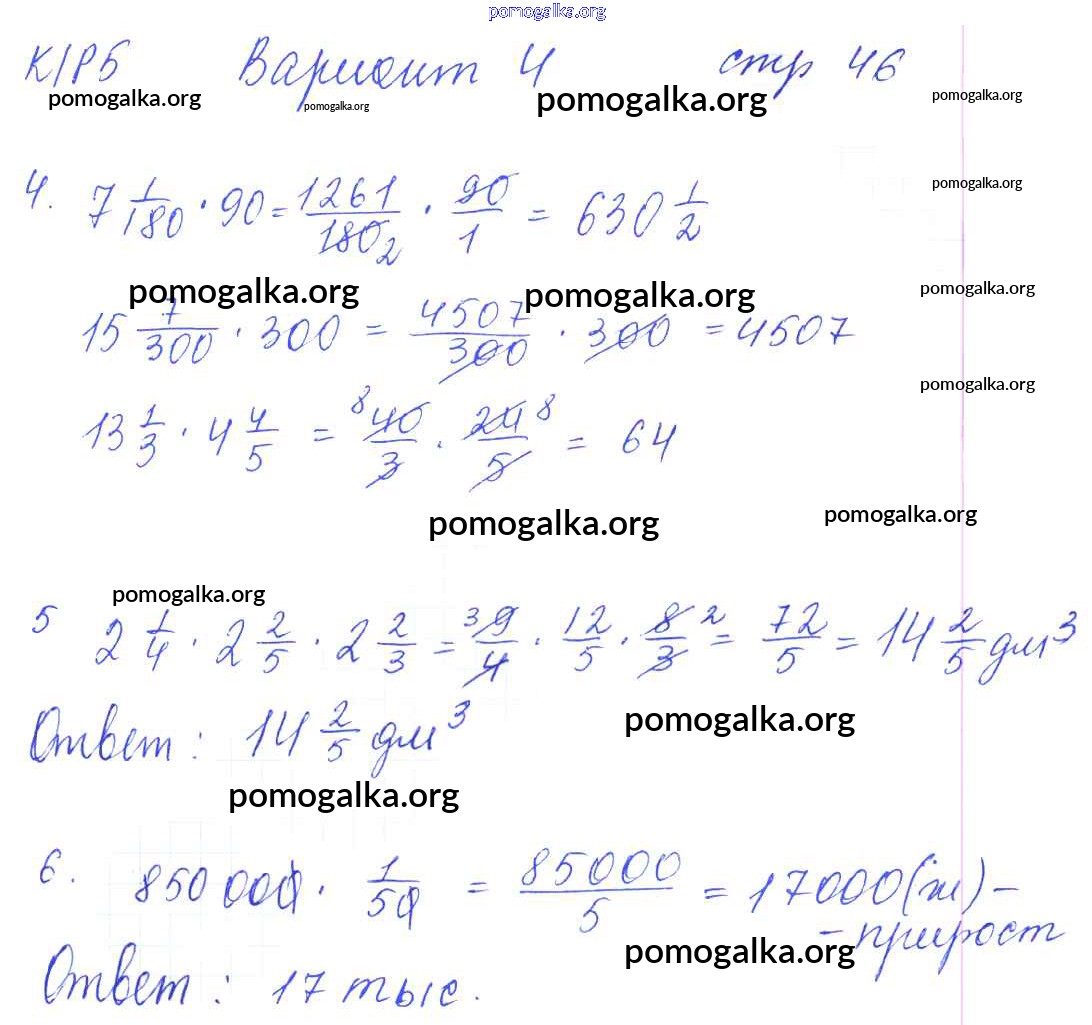 pomogalka.org
К/Р6 Вариант 4 стр 46
pomogalka.org pomogalka.org pomogalka.org pomogalka.org
pomogalka.org
4. 7 1/180 · 90 = 1261/180 2 · 90/1 = 630 1/2
pomogalka.org pomogalka.org pomogalka.org
15 7/300 · 300 = 4507/300 · 300 = 4507
pomogalka.org
13 1/3 · 4 4/5 = 8 40/3 · 24/5 8 = 64
pomogalka.org pomogalka.org
pomogalka.org
5 2 1/4 · 2 2/5 · 2 2/3 = 3 9/4 · 12/5 · 8/3 2 = 72/5 = 14 2/5 дм³
Ответ: 14 2/5 дм³ pomogalka.org
pomogalka.org
6. 850 000 · 1/50 = 85000/5 = 17000 (ж) –
– прирост
pomogalka.org
Ответ: 17 тыс.